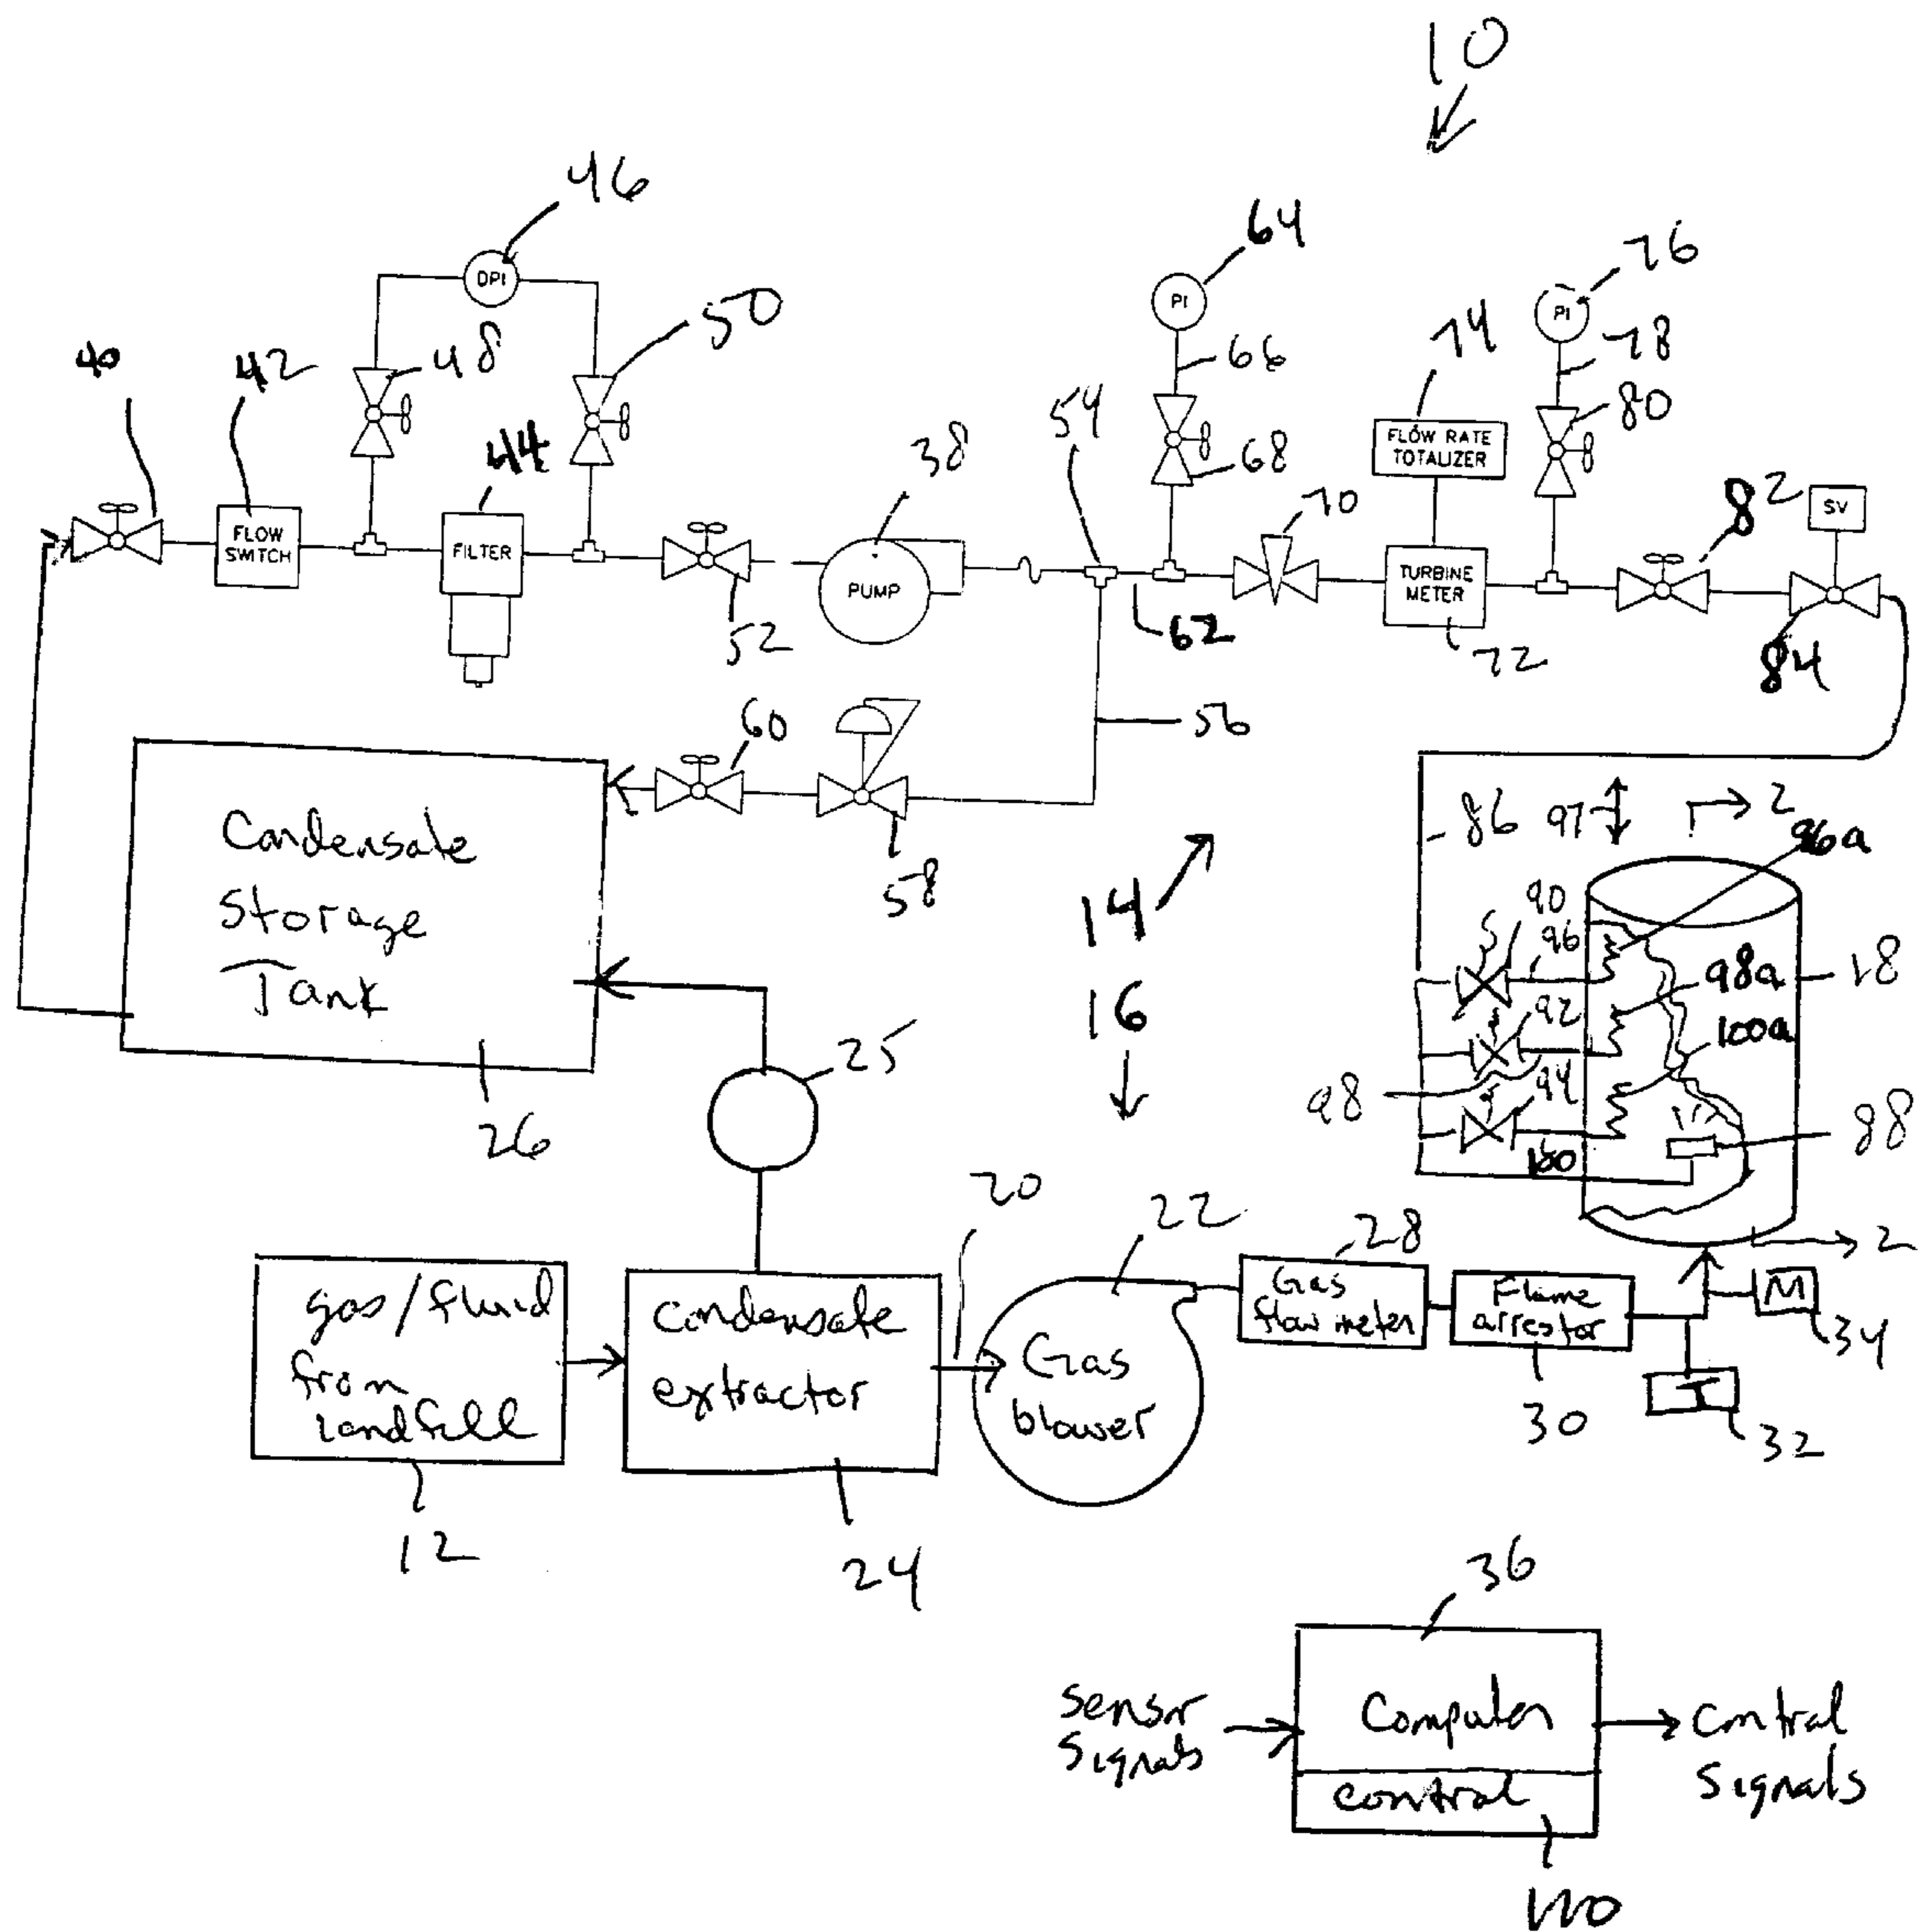 10
46
DPI
64
PI
76
PI
40
42
48
50
44
38
54
66
68
70
74
78
80
82
FLOW RATE
TOTALIZER
SV
FLOW
SWITCH
FILTER
PUMP
TURBINE
METER
52
62
72
84
60
56
58
Condensate
Storage
Tank
14
16
86
97
2
96a
90
96
98a
18
92
100a
94
98
88
100
25
26
20
22
28
2
gas/fluid
from
landfill
Condensate
extractor
Gas
blower
Gas
flow meter
Flame
arrestor
M
34
I
30
32
12
24
36
Sensor
Signals
Computer
control
Control
Signals